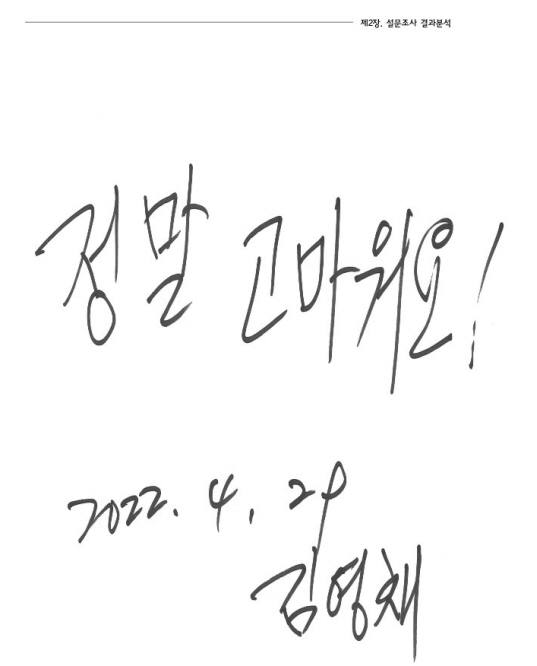 제2장. 설문조사 결과분석
정말 고마워요!
2022. 4. 29
김영채